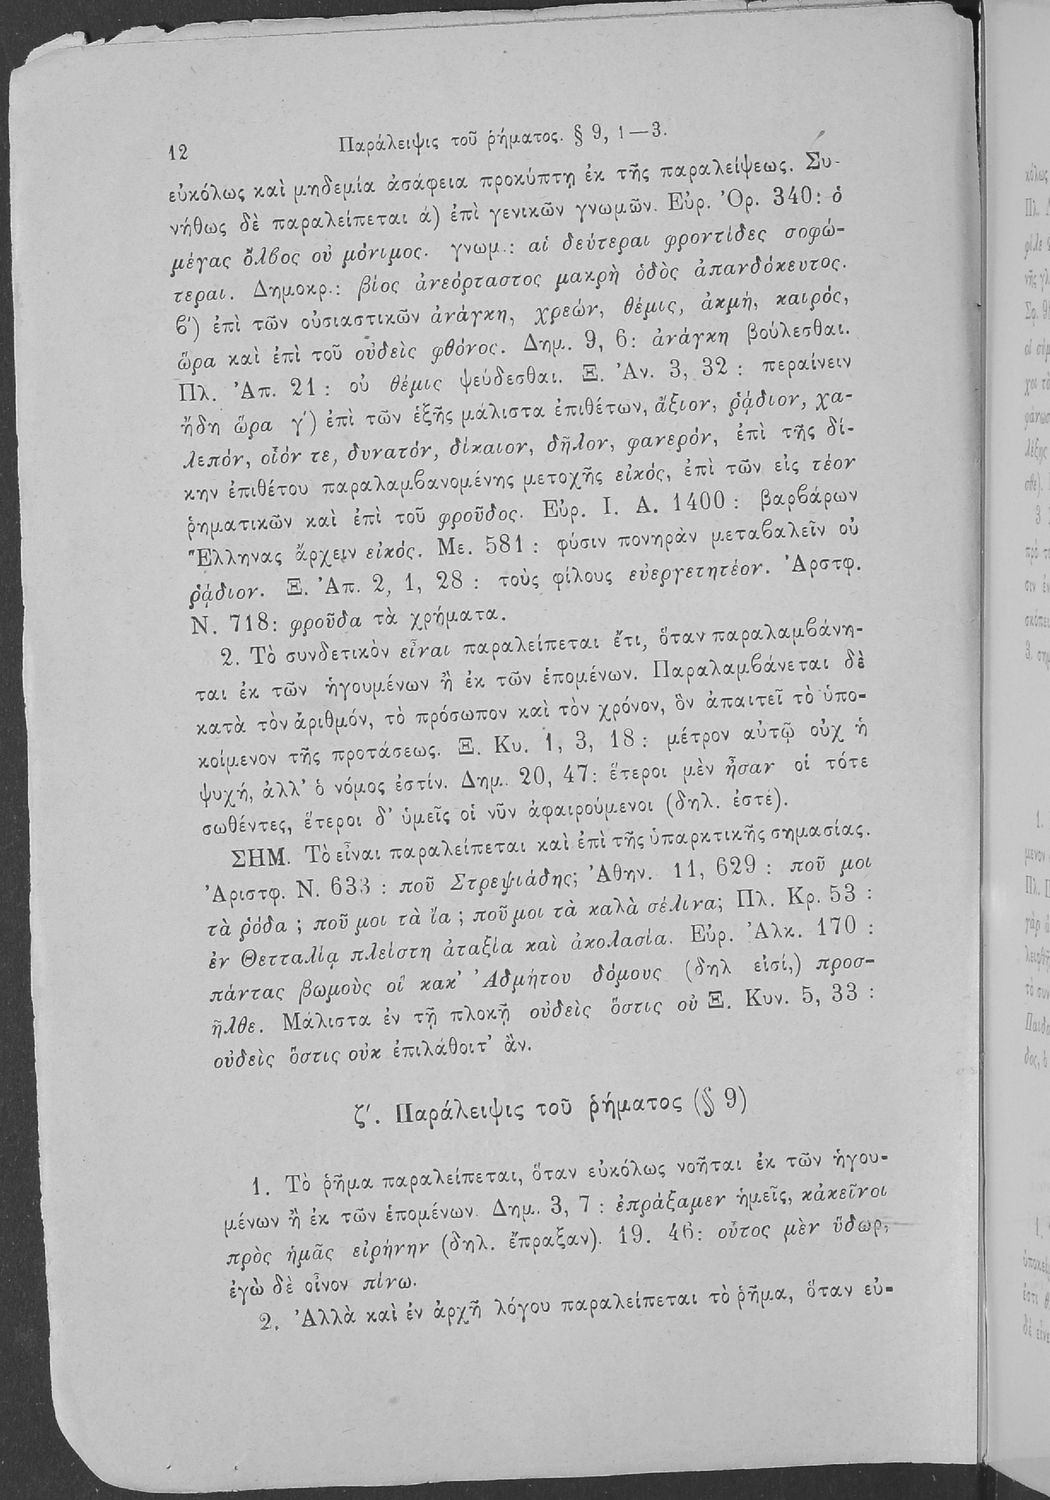 12 Παράλειψις τοῦ ῥήματος. § 9, 1—3.
εὐκόλως καὶ μηδεμία ἀσάφεια προκύπτῃ ἐκ τῆς παραλείψεως. Συ-
νήθως δὲ παραλείπεται ά) ἐπὶ γενικῶν γνωμῶν. Εὐρ. Ὀρ. 340: ὁ
μέγας ὄλβος οὐ μόνιμος. γνωμ.: αἱ δεύτεραι φροντίδες σοφώ-
τεραι. Δημοκρ.: βίος ἀνεόρταστος μακρὴ ὁδὸς ἀπανδόκευτος.
β΄) ἐπὶ τῶν οὐσιαστικῶν ἀνάγκη, χρεών, θέμις, ἀκμή, καιρός,
ὥρα καὶ ἐπὶ τοῦ οὐδεὶς φθόνος. Δημ. 9, 6: ἀνάγκη βούλεσθαι.
Πλ. Ἀπ. 21: οὐ θέμις ψεύδεσθαι. Ξ. Ἀν. 3, 32: περαίνειν
ἤδη ὥρα γ΄) ἐπὶ τῶν ἑξῆς μάλιστα ἐπιθέτων, ἄξιον, ῥᾴδιον, χα-
λεπόν, οἷόν τε, δυνατόν, δίκαιον, δῆλον, φανερόν, ἐπὶ τῆς δί-
κην ἐπιθέτου παραλαμβανομένης μετοχῆς εἰκός, ἐπὶ τῶν εἰς τέον
ῥηματικῶν καὶ ἐπὶ τοῦ φροῦδος. Εὐρ. Ι. Α. 1400: βαρβάρων
Ἕλληνας ἄρχειν εἰκός. Με. 581: φύσιν πονηρὰν μεταβαλεῖν οὐ
ῥᾴδιον. Ξ. Ἀπ. 2, 1, 28: τοὺς φίλους εὐεργετητέον. Ἀρστφ.
Ν. 718: φροῦδα τὰ χρήματα.
2. Τὸ συνδετικὸν εἶναι παραλείπεται ἔτι, ὅταν παραλαμβάνη-
ται ἐκ τῶν ἡγουμένων ἢ ἐκ τῶν ἑπομένων. Παραλαμβάνεται δὲ
κατὰ τὸν ἀριθμόν, τὸ πρόσωπον καὶ τὸν χρόνον, ὃν ἀπαιτεῖ τὸ ὑπο-
κοίμενον τῆς προτάσεως. Ξ. Κυ. 1, 3, 18: μέτρον αὐτῷ οὐχ ἡ
ψυχή, ἀλλ’ ὁ νόμος ἐστίν. Δημ. 20, 47: ἕτεροι μὲν ἦσαν οἱ τότε
σωθέντες, ἕτεροι δ’ ὑμεῖς οἱ νῦν ἀφαιρούμενοι (δηλ. ἐστέ).
ΣΗΜ. Τὸ εἶναι παραλείπεται καὶ ἐπὶ τῆς ὑπαρκτικῆς σημασίας.
Ἀριστφ. Ν. 633: ποῦ Στρεψιάδης; Ἀθην. 11, 629: ποῦ μοι
τὰ ῥόδα; ποῦ μοι τὰ ἴα; ποῦ μοι τὰ καλὰ σέλινα; Πλ. Κρ. 53:
ἐν Θετταλίᾳ πλείστη ἀταξία καὶ ἀκολασία. Εὐρ. Ἀλκ. 170:
πάντας βωμοὺς οἳ κακ’ Ἀδμήτου δόμους (δηλ εἰσί,) προσ-
ῆλθε. Μάλιστα ἐν τῇ πλοκῇ οὐδεὶς ὅστις οὐ Ξ. Κυν. 5, 33:
οὐδεὶς ὅστις οὐκ ἐπιλάθοιτ’ ἄν.
ζ΄. Παράλειψις τοῦ ῥήματος (§ 9)
1. Τὸ ῥῆμα παραλείπεται, ὅταν εὐκόλως νοῆται ἐκ τῶν ἡγου-
μένων ἢ ἐκ τῶν ἑπομένων. Δημ. 3, 7: ἐπράξαμεν ἡμεῖς, κἀκεῖνοι
πρὸς ἡμᾶς εἰρήνην (δηλ. ἔπραξαν). 19. 46: οὗτος μὲν ὕδωρ,
ἐγὼ δὲ οἶνον πίνω.
2. Ἀλλὰ καὶ ἐν ἀρχῇ λόγου παραλείπεται τὸ ῥῆμα, ὅταν εὐ-